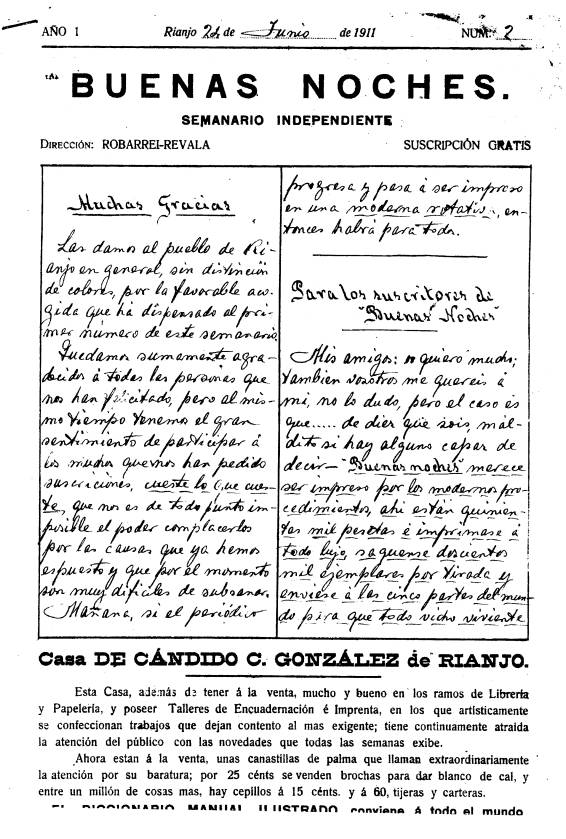 AÑO I Rianjo 24 de Junio de 1911 NUM. 2
BUENAS NOCHES.
SEMANARIO INDEPENDIENTE
DIRECCIÓN: ROBARREI-REVALA SUSCRIPCIÓN GRATIS
Muchas Gracias
Las damos al pueblo de Ri-
anjo en general, sin distinción
de colores, por la favorable aco-
gida que ha dispensado al pri-
mer número de este semanario.
Quedamos sumamente agra-
decidos á todas las personas que
nos han felicitado, pero al mis-
mo tiempo tenemos el gran
sentimiento de participar á
los muchos que nos han pedido
suscriciones, cueste lo que cues-
te, que nos es de todo punto im-
posible el poder complacerlos
por las causas que ya hemos
espuesto y que por el momento
son muy difíciles de subsanar.
Mañana, si el periódico
progresa y pasa á ser impreso
en una moderna rotativa, en-
tonces habrá para todo.
Para los suscritores de
"Buenas Noches"
Mis amigos: os quiero mucho;
tambien vosotros me quereis á
mi, no lo dudo, pero el caso es
que..... de diez que sois, mal-
dito si hay alguno capaz de
decir—"Buenas noches" merece
ser impreso por los modernos pro-
cedimientos, ahi están quinien-
tas mil pesetas é imprimase á
todo lujo, saquense doscuentos
mil ejemplares por tirada y
enviese á las cinco partes del mun-
do para que todo vicho viviente
Casa DE CÁNDIDO C. GONZÁLEZ de RIANJO.
Esta Casa, además de tener á la venta, mucho y bueno en los ramos de Librería
y Papelería, y poseer Talleres de Encuadernación é Imprenta, en los que artisticamente
se confeccionan trabajos que dejan contento al mas exigente; tiene continuamente atraida
la atención del público con las novedades que todas las semanas exibe.
Ahora están á la venta, unas canastillas de palma que llaman extraordinariamente
la atención por su baratura; por 25 cénts se venden brochas para dar blanco de cal, y
entre un millón de cosas mas, hay cepillos á 15 cénts. y á 60, tijeras y carteras.
EL DICCIONARIO MANUAL ILUSTRADO conviene á todo el mundo